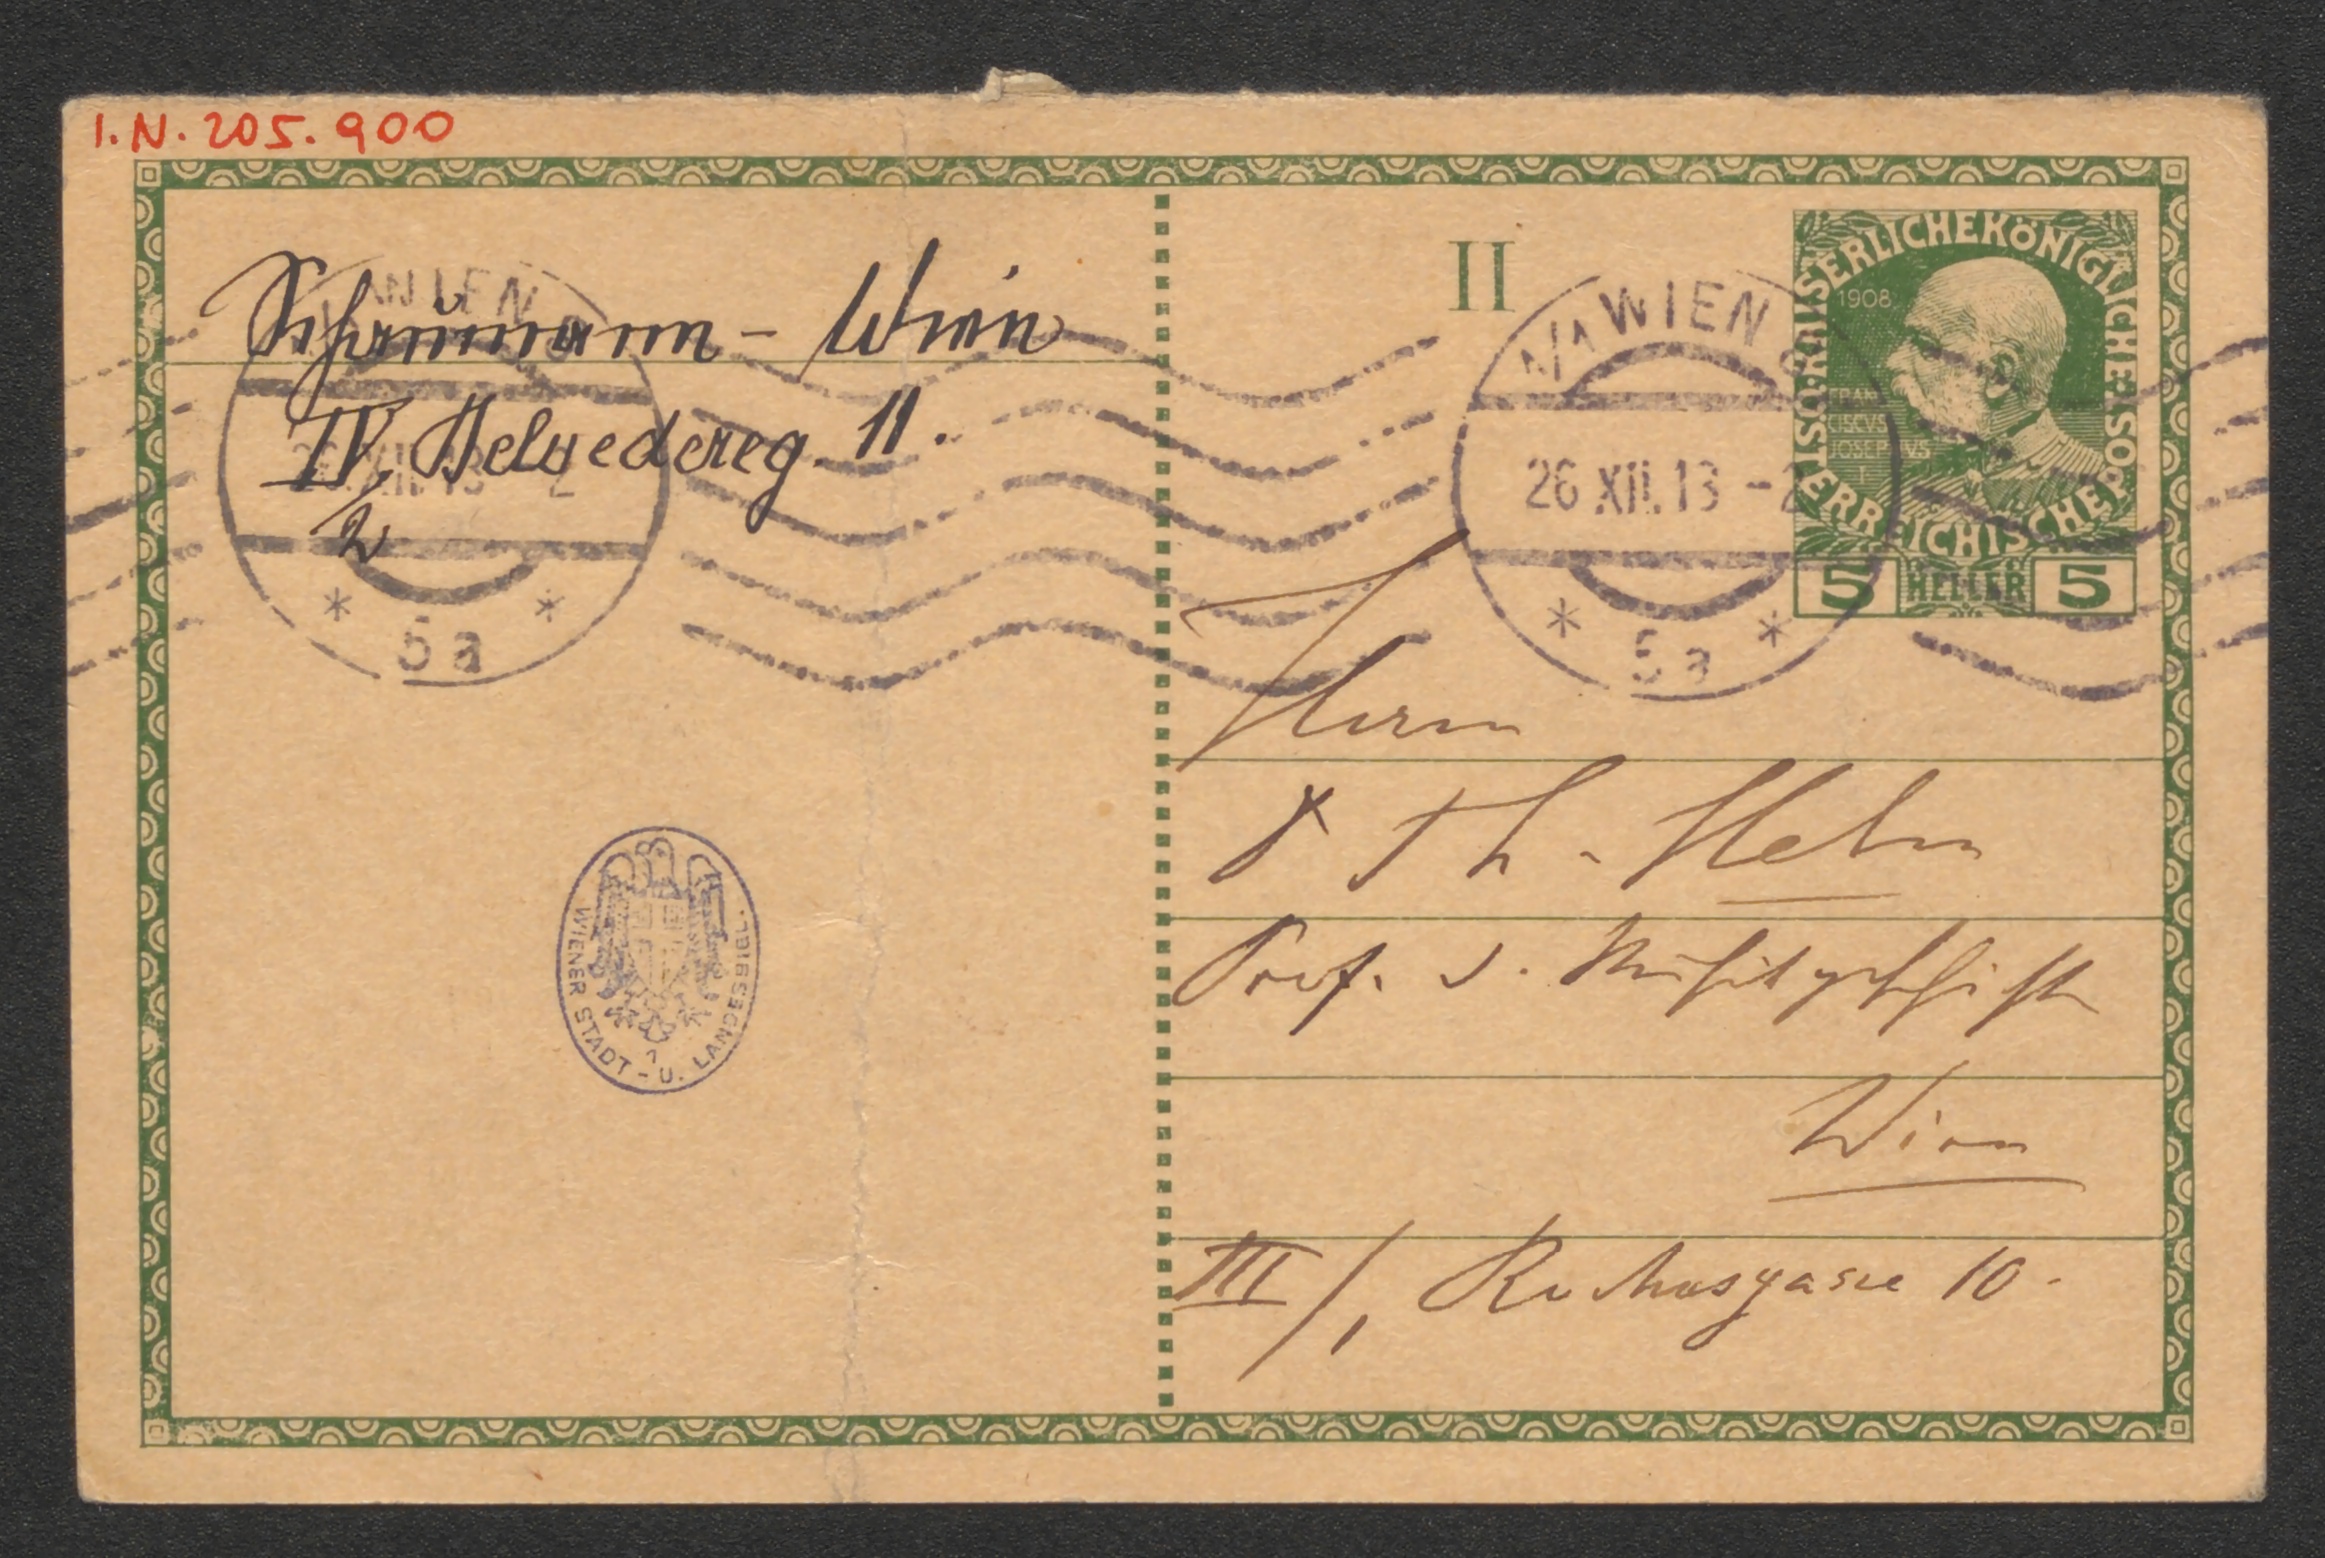 I.N. 205.900
Schaumann - Wien
IV/2 Belvedereg. 11.
II
1/1 WIEN
26.XII.13 - 2
* 5a *
1/1 WIEN
26.XII.13 - 2
* 5a *
KAISERLICHE KÖNIGLICHE ÖSTERREICHISCHE POST
1908
FRAN
CISCVS
JOSEPHVS
I
5 HELLER 5
Herrn
Dr Th. Helm
Prof. d. Musikgeschichte
Wien
III/1 Rochusgasse 10.
WIENER STADT - U. LANDESBIBL.